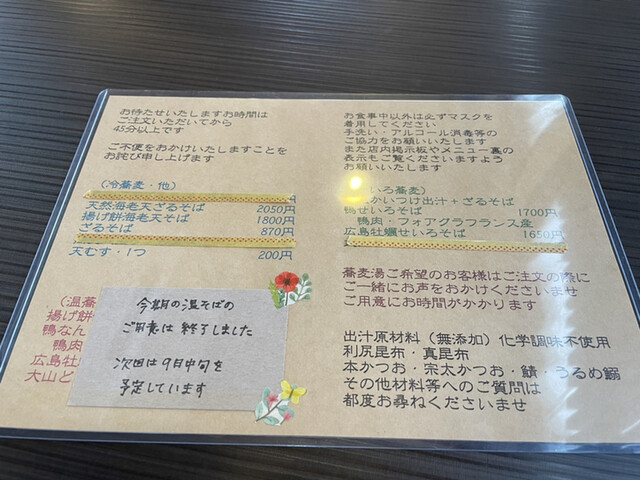 お待たせいたしますお時間は
ご注文いただいてから
45分以上です
ご不便をおかけいたしますことを
お詫び申し上げます
(冷蕎麦・他)
天然海老天ざるそば 2050円
揚げ餅海老天そば 1800円
ざるそば 870円
天むす・1つ 200円
(温蕎
揚げ餅
鴨なん
鴨肉
広島牡
大山ど
今期の温そばの
ご用意は終了しました
次回は9月中旬を
予定しています
お食事中以外は必ずマスクを
着用してください
手洗い・アルコール消毒等の
ご協力をお願いいたします
また店内掲示板やメニュー裏の
表示もご覧くださいますよう
お願いいたします
いろ蕎麦)
かいつけ出汁+ざるそば
鴨せいろそば 1700円
鴨肉・フォアグラフランス産
広島牡蠣せいろそば 1650円
蕎麦湯ご希望のお客様はご注文の際に
ご一緒にお声をおかけくださいませ
ご用意にお時間がかかります
出汁原材料(無添加)化学調味不使用
利尻昆布・真昆布
本かつお・宗太かつお・鯖・うるめ鰯
その他材料等へのご質問は
都度お尋ねくださいませ